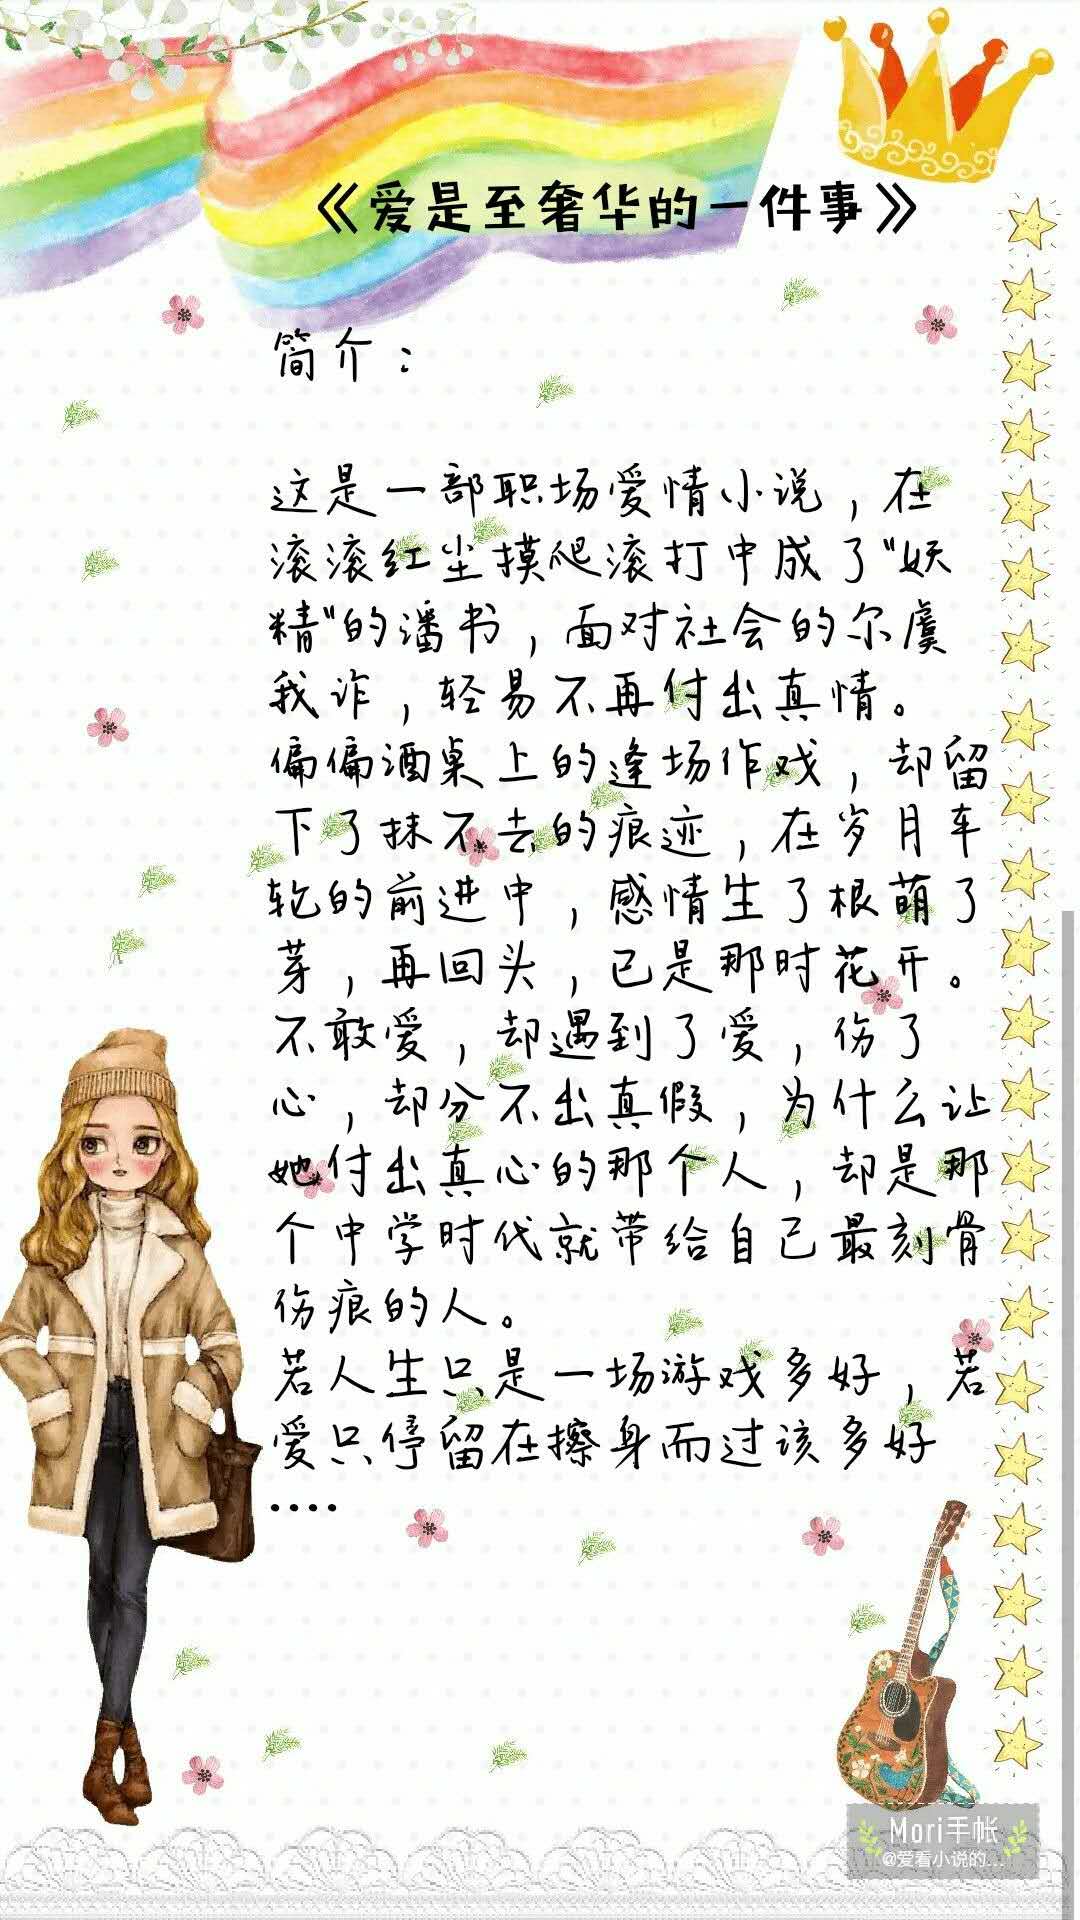 《爱是至奢华的一件事》
简介：
这是一部职场爱情小说，在
滚滚红尘摸爬滚打中成了"妖
精"的潘书，面对社会的尔虞
我诈，轻易不再付出真情。
偏偏酒桌上的逢场作戏，却留
下了抹不去的痕迹，在岁月车
轮的前进中，感情生了根萌了
芽，再回头，已是那时花开。
不敢爱，却遇到了爱，伤了
心，却分不出真假，为什么让
她付出真心的那个人，却是那
个中学时代就带给自己最刻骨
伤痕的人。
若人生只是一场游戏多好，若
爱只停留在擦身而过该多好
....
Mori手帐
@爱看小说的...